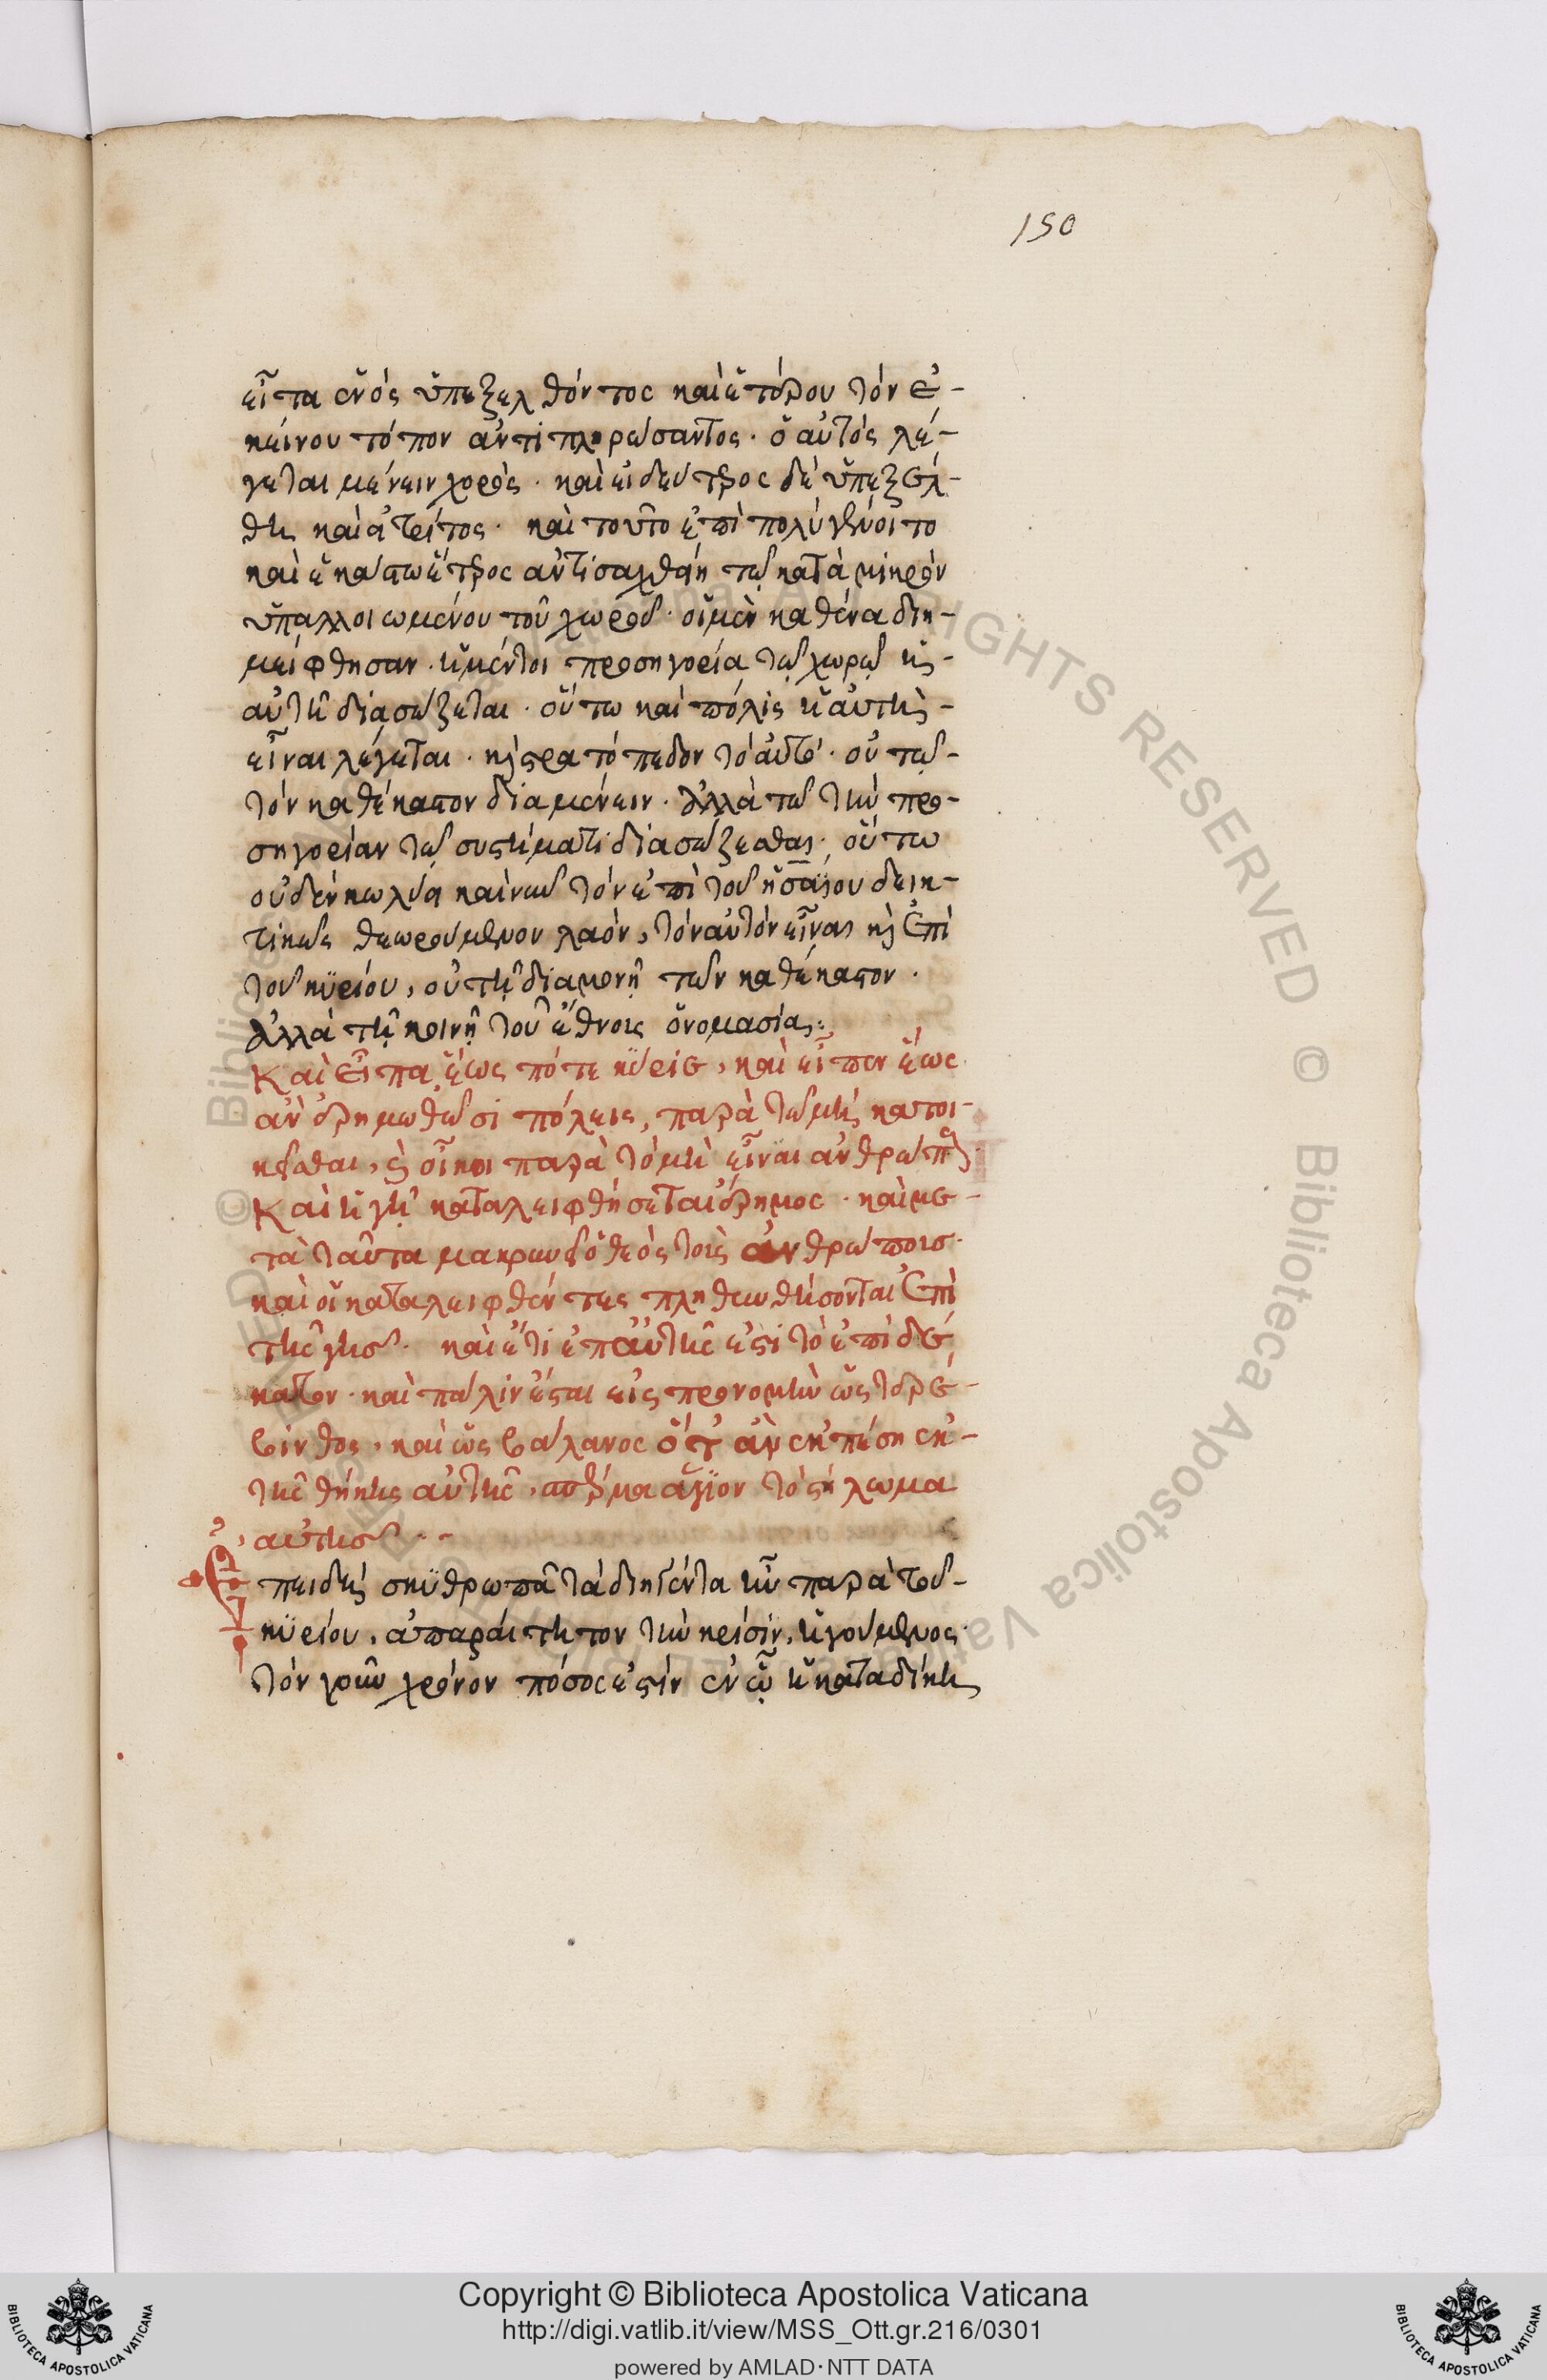 150
εἶτα ἑνὸς ὑπεξελθόντος καὶ ἑτέρου τὸν ἐ-
κείνου τόπον ἀντιπληρώσαντος· ὁ αὐτὸς λέ-
γεται μένειν χορός· καὶ εἰ δεύτερος δὲ ὑπεξέλ-
θη καὶ ὁ τρίτος· καὶ τοῦτο ἐπὶ πολὺ γένοιτο
καὶ ἑκάστω ἕτερος ἀντισαχθείη τῶ κατὰ μικρὸν
ὑπαλλοιωμένου τοῦ χωροῦ· οἱ μὲν καθένα διη-
μείφθησαν· ἡ μέντοι προσηγορία τῷ χωρῷ ἡ-
αὐτὴ διασώζεται· οὕτω καὶ πόλις ἡ αὐτὴ-
εἶναι λέγεται· κỳ στρατόπεδον τὸ αὐτό· οὐ τῷ-
τὸν καθέκαστον διαμένειν· ἀλλὰ τῶ τὴν προ-
σηγορίαν τῷ συστήματι διασώζεσθαι· οὕτω
οὐδὲν κωλύει καὶ νῦν τὸν ἐπὶ τοῦ ἠσαΐου δεικ-
τικῶς θεωρούμενον λαόν, τὸν αὐτὸν εἶναι κỳ ἐπὶ
τοῦ κυρίου, οὐ τῇ διαμονῇ τῶν καθέκαστον·
ἀλλὰ τῇ κοινῇ τοῦ ἔθνοις ὀνομασίας:
Καὶ εἶπα ἕως πότε κύριε, καὶ εἶπεν ἕως
ἂν ἐρημωθῶσι πόλεις, παρὰ τῶ μὴ κατοι-
κεῖσθαι, κỳ οἶκοι παρὰ τὸ μὴ εἶναι ἀνθρώπους
Καὶ ἡ γῆ καταλειφθήσεται ἔρημος· καὶ με-
τὰ ταῦτα μακρυνεῖ ὁ θεὸς τοὺς ἀνθρώποισ·
καὶ οἱ καταλειφθέντες πληθυνθήσονται ἐπὶ
τῆς γῆσ· καὶ ἔτι ἐπ αὐτῆς ἐστὶ τὸ ἐπιδέ-
κατον· καὶ πάλιν ἔσται εἰς προνομὴν ὡς τερέ-
βινθος, καὶ ὡς βάλανος ὅταν ἐκπέση ἐκ-
τῆς θήκης αὐτῆς, σπέρμα ἅγιον τὸ στήλωμα
αυτησ··-
Ἐπειδὴ σκυθρωπὰ τὰ διηγέντα ἦν παρὰ τοῦ-
κυρίου, ἀπαραίτητον τὴν κρίσιν, ἡγούμενος·
τὸν γοῦν χρόνον πόσος ἐστὶν ἐν ᾧ ἡ καταδίκη
Copyright © Biblioteca Apostolica Vaticana
http://digi.vatlib.it/view/MSS_Ott.gr.216/0301
powered by AMLAD·NTT DATA